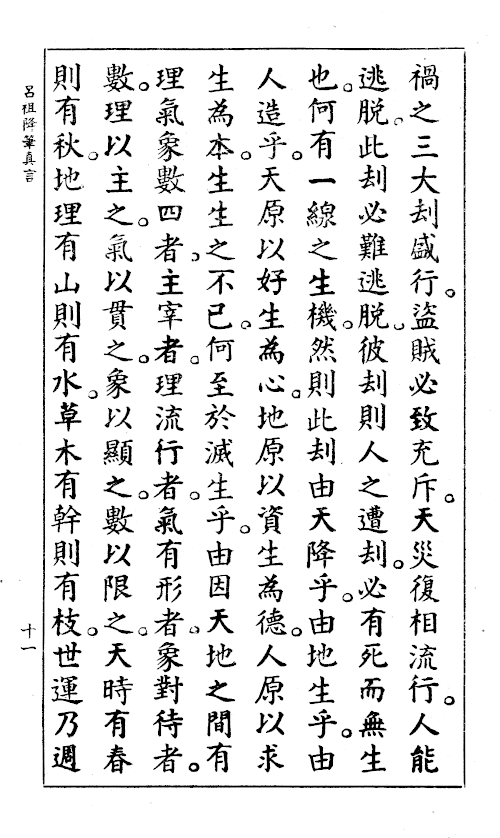 禍之三大刦盛行。盜賊必致充斥。天災復相流行。人能
逃脱。此刦必難逃脱。彼刦則人之遭刦。必有死而無生
也。何有一線之生機。然則此刦由天降乎。由地生乎。由
人造乎。天原以好生為心。地原以資生為德。人原以求
生為本。生生之不已。何至於滅生乎。由因天地之間有
理氣象數四者。主宰者。理流行者。氣有形者。象對待者。
數。理以主之。氣以貫之。象以顯之。數以限之。天時有春
則有秋。地理有山則有水。草木有幹則有枝。世運乃週
呂祖降筆真言
十一